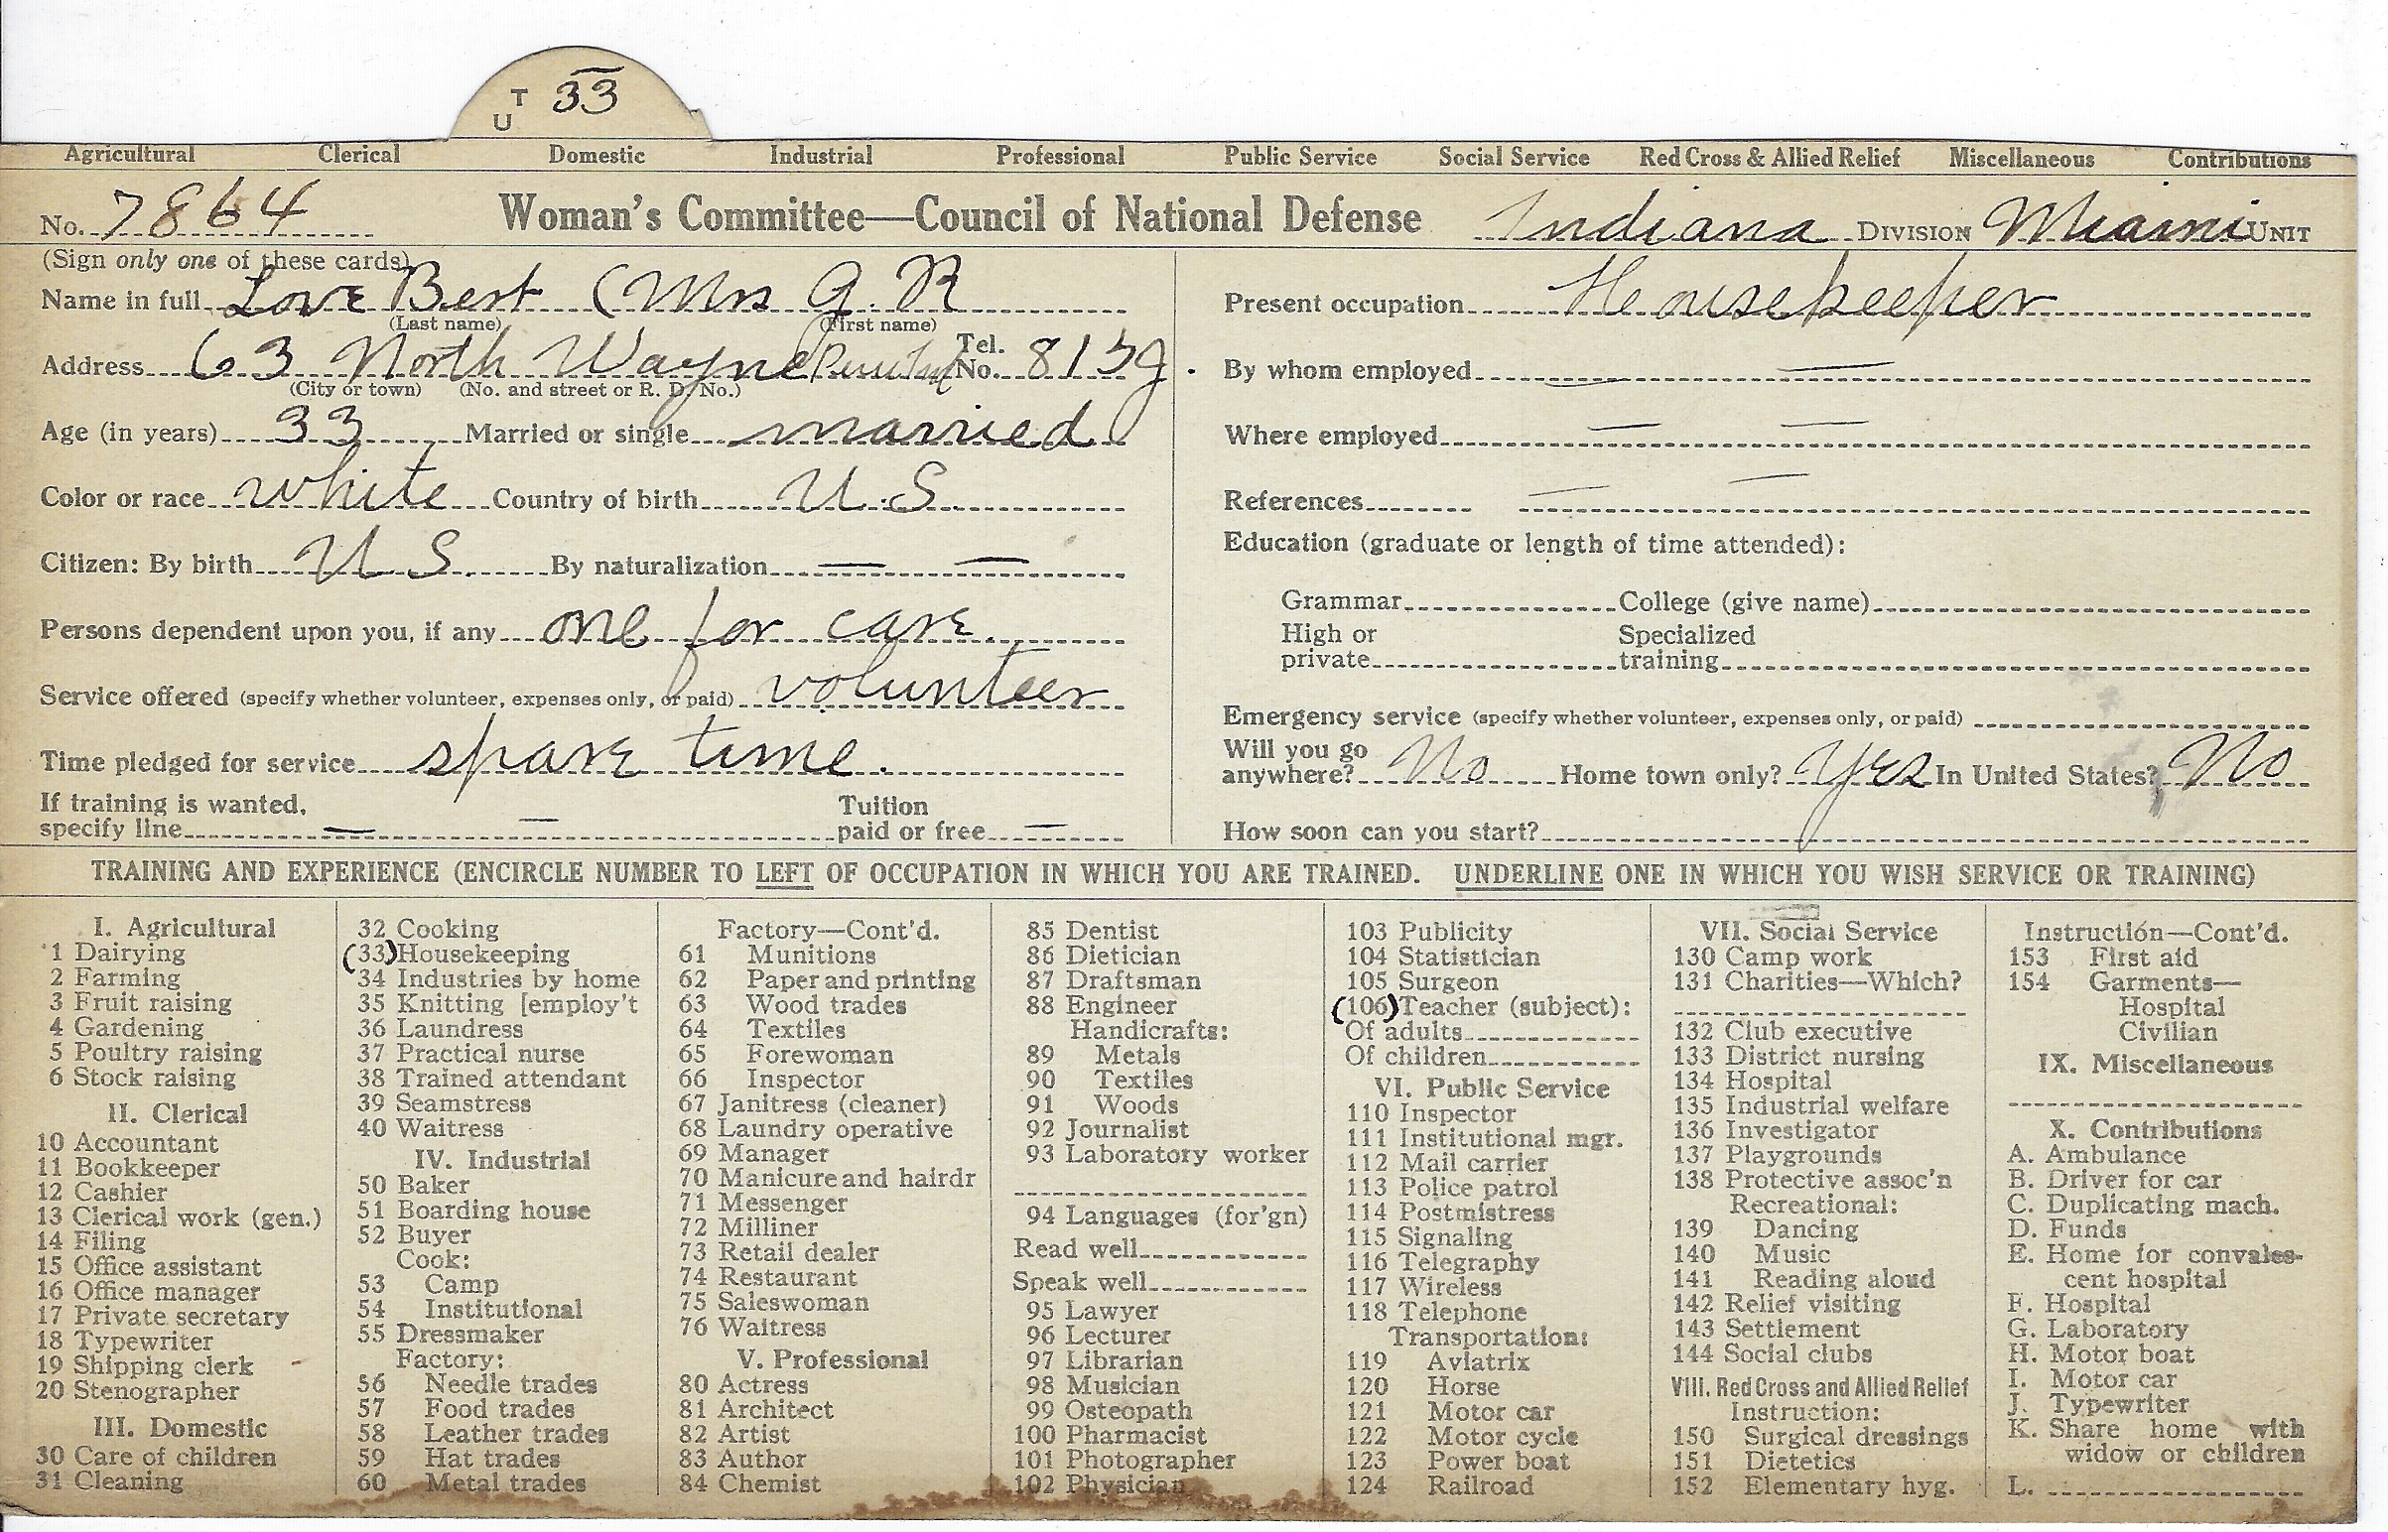 T 33
U
Agricultural Clerical Domestic Industrial Professional Public Service Social Service Red Cross & Allied Relief Miscellaneous Contributions
No. 7864 Woman's Committee—Council of National Defense Indiana DIVISION Miami UNIT
(Sign only one of these cards)
Name in full Love Bert (Mrs G. R
(Last name) (First name)
Address 63 North Wayne Peru Ind Tel. No. 815J.
(City or town) (No. and street or R. D. No.)
Age (in years) 33 Married or single married
Color or race white Country of birth U.S.
Citizen: By birth U S By naturalization — —
Persons dependent upon you, if any one for care.
Service offered (specify whether volunteer, expenses only, or paid) volunteer
Time pledged for service spare time.
If training is wanted, Tuition
specify line — — paid or free —
Present occupation Housekeeper
By whom employed — —
Where employed — —
References — —
Education (graduate or length of time attended):
Grammar College (give name)
High or Specialized
private training
Emergency service (specify whether volunteer, expenses only, or paid)
Will you go
anywhere? No Home town only? Yes In United States? No
How soon can you start?
TRAINING AND EXPERIENCE (ENCIRCLE NUMBER TO LEFT OF OCCUPATION IN WHICH YOU ARE TRAINED. UNDERLINE ONE IN WHICH YOU WISH SERVICE OR TRAINING)
I. Agricultural
1 Dairying
2 Farming
3 Fruit raising
4 Gardening
5 Poultry raising
6 Stock raising
II. Clerical
10 Accountant
11 Bookkeeper
12 Cashier
13 Clerical work (gen.)
14 Filing
15 Office assistant
16 Office manager
17 Private secretary
18 Typewriter
19 Shipping clerk
20 Stenographer
III. Domestic
30 Care of children
31 Cleaning
32 Cooking
(33) Housekeeping
34 Industries by home
35 Knitting [employ't
36 Laundress
37 Practical nurse
38 Trained attendant
39 Seamstress
40 Waitress
IV. Industrial
50 Baker
51 Boarding house
52 Buyer
Cook:
53 Camp
54 Institutional
55 Dressmaker
Factory:
56 Needle trades
57 Food trades
58 Leather trades
59 Hat trades
60 Metal trades
Factory—Cont'd.
61 Munitions
62 Paper and printing
63 Wood trades
64 Textiles
65 Forewoman
66 Inspector
67 Janitress (cleaner)
68 Laundry operative
69 Manager
70 Manicure and hairdr
71 Messenger
72 Milliner
73 Retail dealer
74 Restaurant
75 Saleswoman
76 Waitress
V. Professional
80 Actress
81 Architect
82 Artist
83 Author
84 Chemist
85 Dentist
86 Dietician
87 Draftsman
88 Engineer
Handicrafts:
89 Metals
90 Textiles
91 Woods
92 Journalist
93 Laboratory worker
94 Languages (for'gn)
Read well
Speak well
95 Lawyer
96 Lecturer
97 Librarian
98 Musician
99 Osteopath
100 Pharmacist
101 Photographer
102 Physician
103 Publicity
104 Statistician
105 Surgeon
(106) Teacher (subject):
Of adults
Of children
VI. Public Service
110 Inspector
111 Institutional mgr.
112 Mail carrier
113 Police patrol
114 Postmistress
115 Signaling
116 Telegraphy
117 Wireless
118 Telephone
Transportation:
119 Aviatrix
120 Horse
121 Motor car
122 Motor cycle
123 Power boat
124 Railroad
VII. Social Service
130 Camp work
131 Charities—Which?
132 Club executive
133 District nursing
134 Hospital
135 Industrial welfare
136 Investigator
137 Playgrounds
138 Protective assoc'n
Recreational:
139 Dancing
140 Music
141 Reading aloud
142 Relief visiting
143 Settlement
144 Social clubs
VIII. Red Cross and Allied Relief
Instruction:
150 Surgical dressings
151 Dietetics
152 Elementary hyg.
Instruction—Cont'd.
153 First aid
154 Garments—
Hospital
Civilian
IX. Miscellaneous
X. Contributions
A. Ambulance
B. Driver for car
C. Duplicating mach.
D. Funds
E. Home for convales-
cent hospital
F. Hospital
G. Laboratory
H. Motor boat
I. Motor car
J. Typewriter
K. Share home with
widow or children
L.